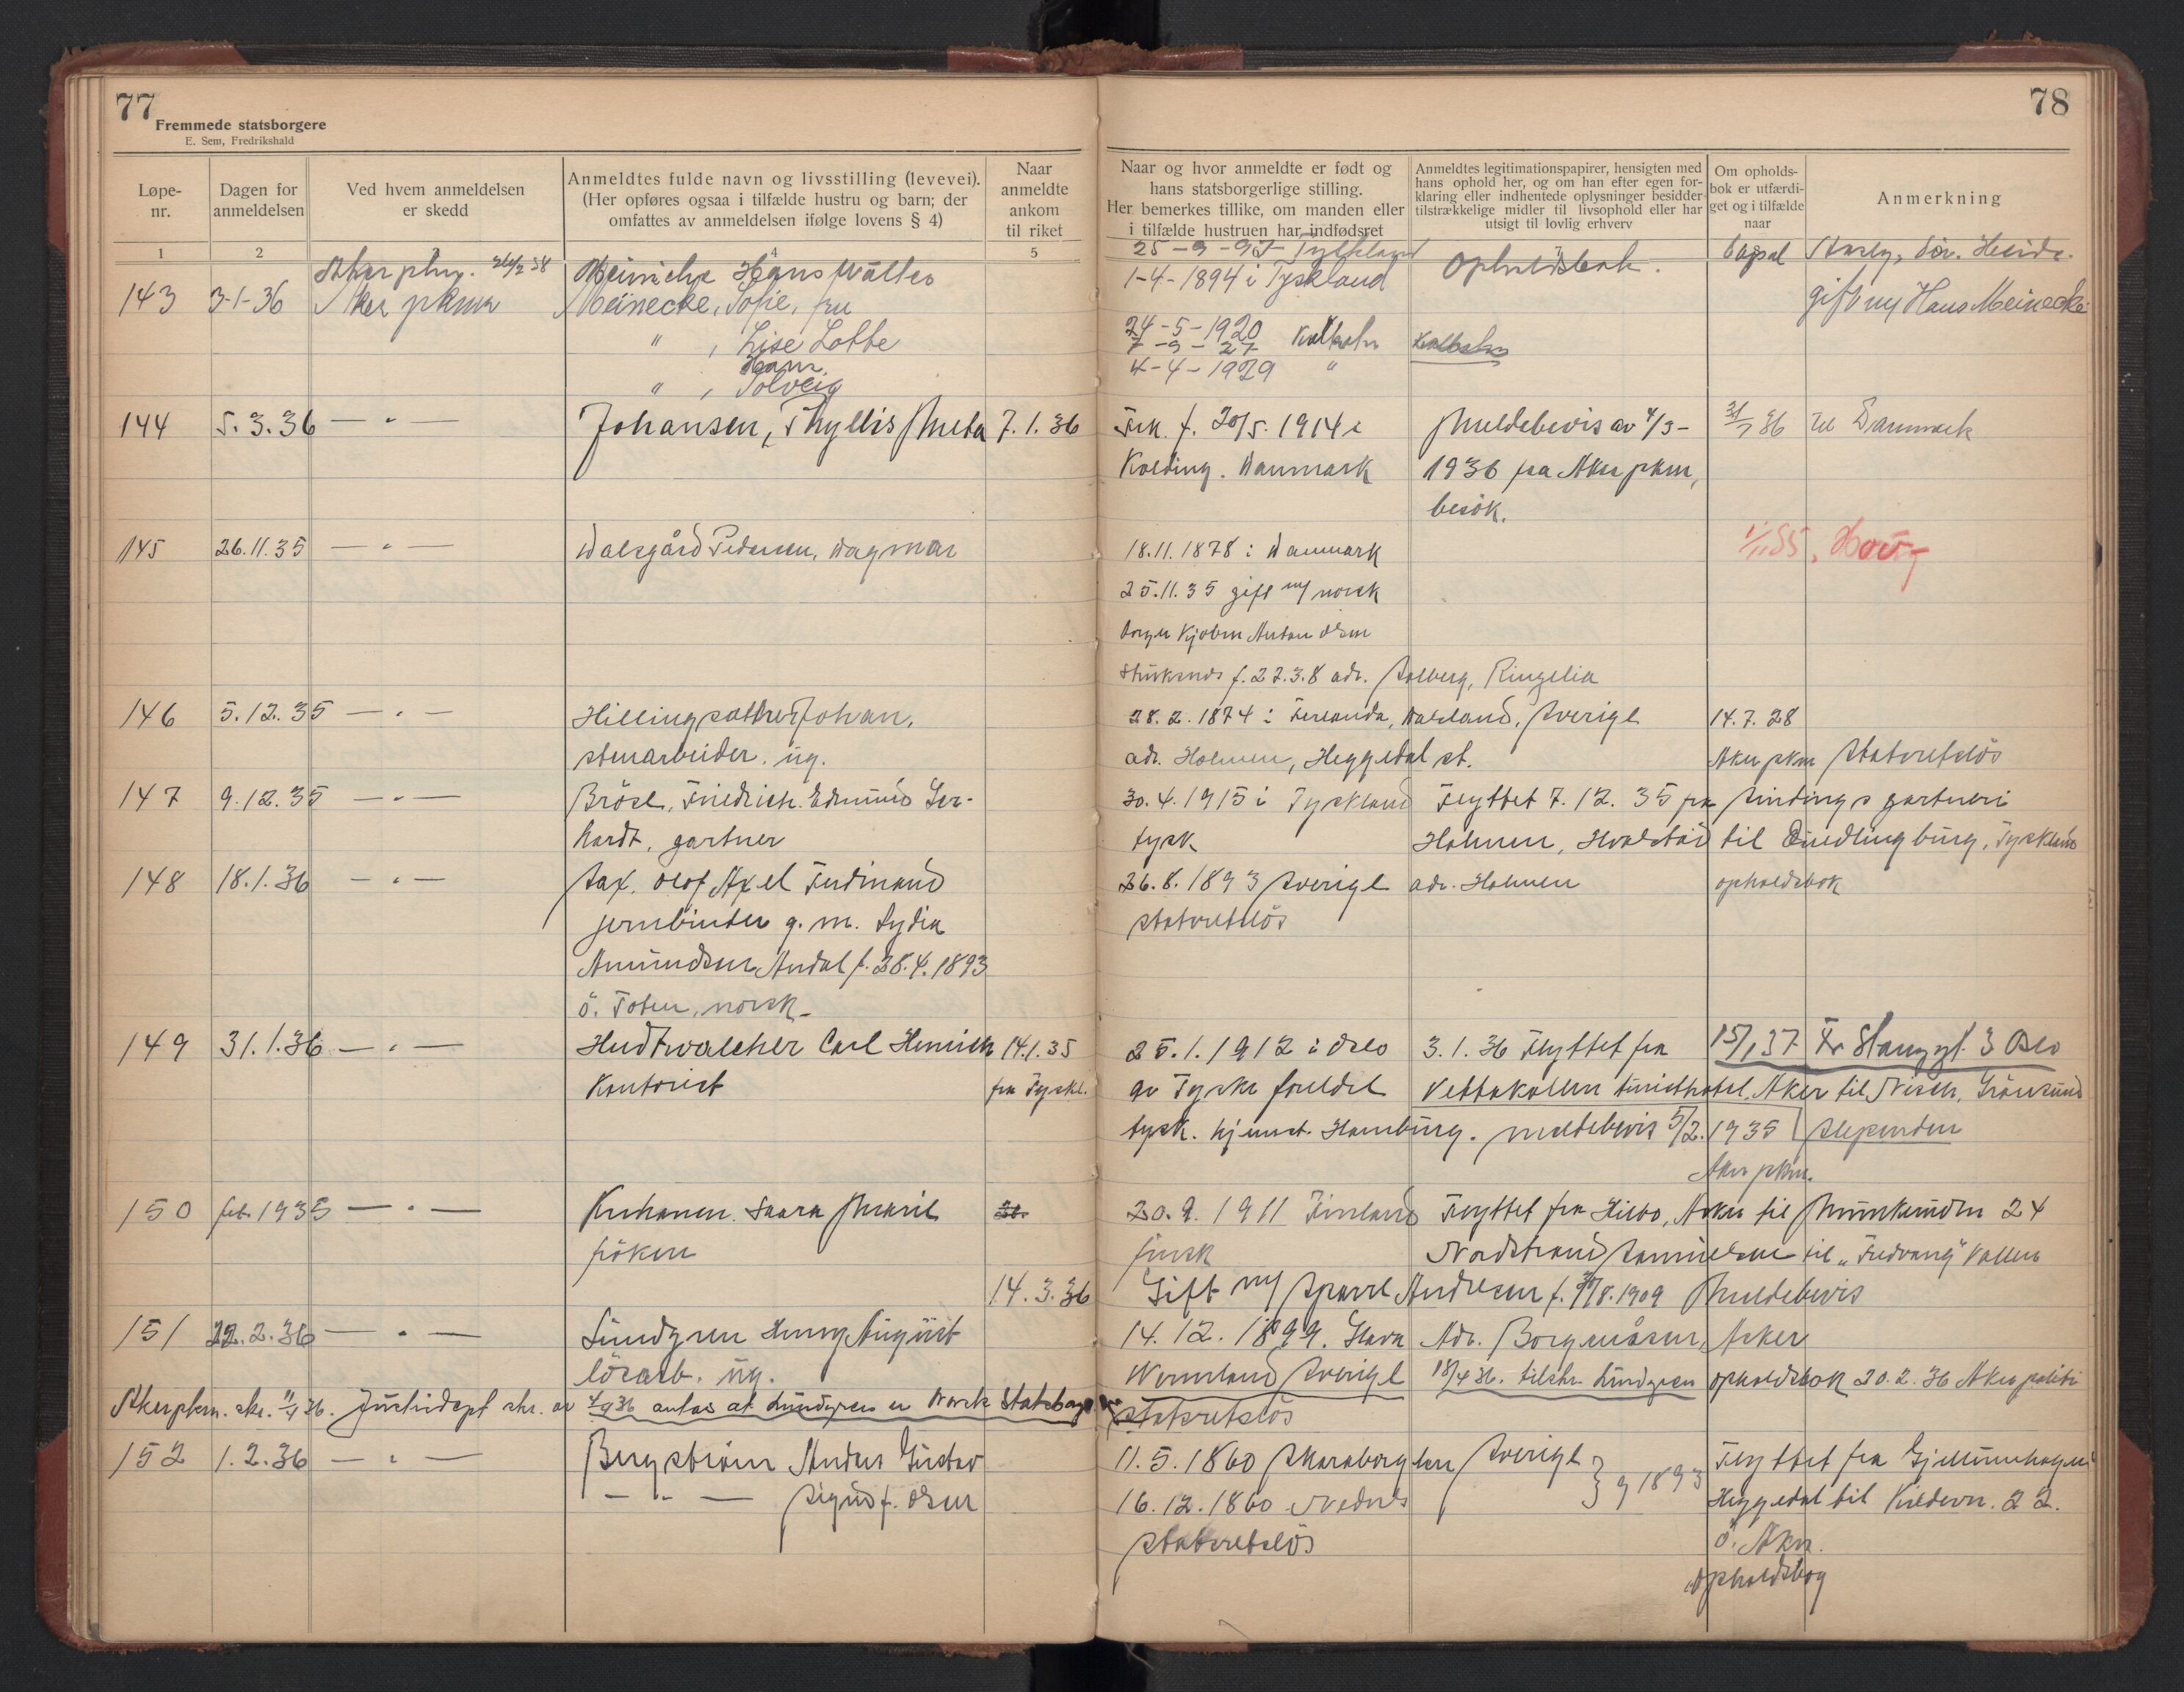 77
Fremmede statsborgere
E. Sem, Fredrikshald
78
Løpe-
nr.
Dagen for
anmeldelsen
Ved hvem anmeldelsen
er skedd
Anmeldtes fulde navn og livsstilling (levevei).
(Her opføres ogsaa i tilfælde hustru og barn; der
omfattes av anmeldelsen ifølge lovens § 4)
Naar
anmeldte
ankom
til riket
Naar og hvor anmeldte er født og
hans statsborgerlige stilling.
Her bemerkes tillike, om manden eller
i tilfælde hustruen har indfødsret
Anmeldtes legitimationspapirer, hensigten med
hans ophold her, og om han efter egen for-
klaring eller indhentede oplysninger besidder
tilstrækkelige midler til livsophold eller har
utsigt til lovlig erhverv
Om opholds-
bok er utfærdi-
get og i tilfælde
naar
Anmerkning
1 2 3 4 5
Meinicke Hans Walter
25-9-95 Tyskland
143 3-1-36 Aker pkmr Meinecke, Sofie, fru
1-4-1894 i Tyskland Opholdsbok.
gift m/ Hans Meinecke
" , Lise Lotte 24-5-1920
Hans 7-9-27
" , Solveig 4-4-1929 "
144 5.3.36 — " — Johansen, Thyllis Meta 7.1.36
Frk. f. 20/5. 1914 i Meldebevis av 4/3- 31/7 36 til Danmark
Kolding. Danmark 1936 fra Aker pkm,
besök.
145 26.11.35 — " — Dalsgård Pedersen, Dagmar
18.11.1878 i Danmark
25.11.35 gift m/ norsk
f. 27.3.8 adr. Solberg, Ringelia
146 5.12.35 — " — Hillingsäther Johan,
28.2.1874 i Dalsland, Sverige 14.7.28
stenarbeider. ug.
adr. Holmen, Heggedal st. Aker pkm statsretslös
147 9.12.35 — " — Brösel, Friedrich Edmund Ger-
30.4.1915 i Tyskland Flyttet 7.12.35 fra Sindings gartneri
hardt, gartner
tysk Holmen, Hvalstad til Quedlingburg, Tyskland
148 18.1.36 — " — Sax. Olof Axel Ferdinand
26.8.1893 Sverige adr. Holmen opholdsbok
jernbinder g. m. Lydia
statsretslös
Amundsen Andal f. 28.4.1893
ö. Toten, norsk
149 31.1.36 — " — Hudtwalcher Carl Hinrich 14.1.35
25.1.1912 i Oslo 3.1.36 Flyttet fra 15/1 37 Fr. Stangsgt. 3 Oslo
Kontorist fra Tyskl.
av Tyske foreldre Vettakolen turisthotel. Aker til Nisen, Grönsund
tysk. hjemst. Hamburg. meldebevis 5/2. 1935 Slependen
Aker pkm.
150 feb. 1935 — " — Saara Marie
20.9.1911 Finland Flyttet fra Aker til Munkerudvn 24
fröken
finsk Nordstrand til "Fredvang" Vollen
14.3.36
Gift m/ Sparre Andresen f. 8.1909 Meldebevis
151 22.2.36 — " — Lundgren Henry August
14.12.1899. Glava Adr. Borgenåsen, Asker
lösarb. ug.
Wermland Sverige 18/4 36. tilskr. Lundgren opholdsbok 20.2.36 Aker politi
Aker pkm. skr. 36. Justisdept skr. av 36 antas at Lundgren er Norsk Statsborger
statsretslös
152 1.2.36 — " — Bergström Anders Gustav
11.5.1860 Skaraborg len Sverige } g 1893 Flyttet fra
— " — Sigrid f. Olsen
16.12.1860 Nednes Heggedal til Kildevn. 22.
statsretslös ö. Aker.
opholdsbog